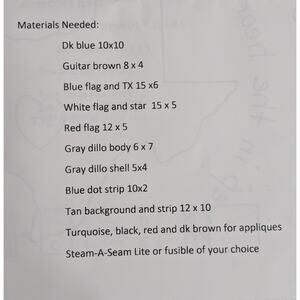 Materials Needed:
Dk blue 10x10
Guitar brown 8 x 4
Blue flag and TX 15 x6
White flag and star  15 x 5
Red flag 12 x 5
Gray dillo body 6 x 7
Gray dillo shell 5x4
Blue dot strip 10x2
Tan background and strip 12 x 10
Turquoise, black, red and dk brown for appliques
Steam-A-Seam Lite or fusible of your choice